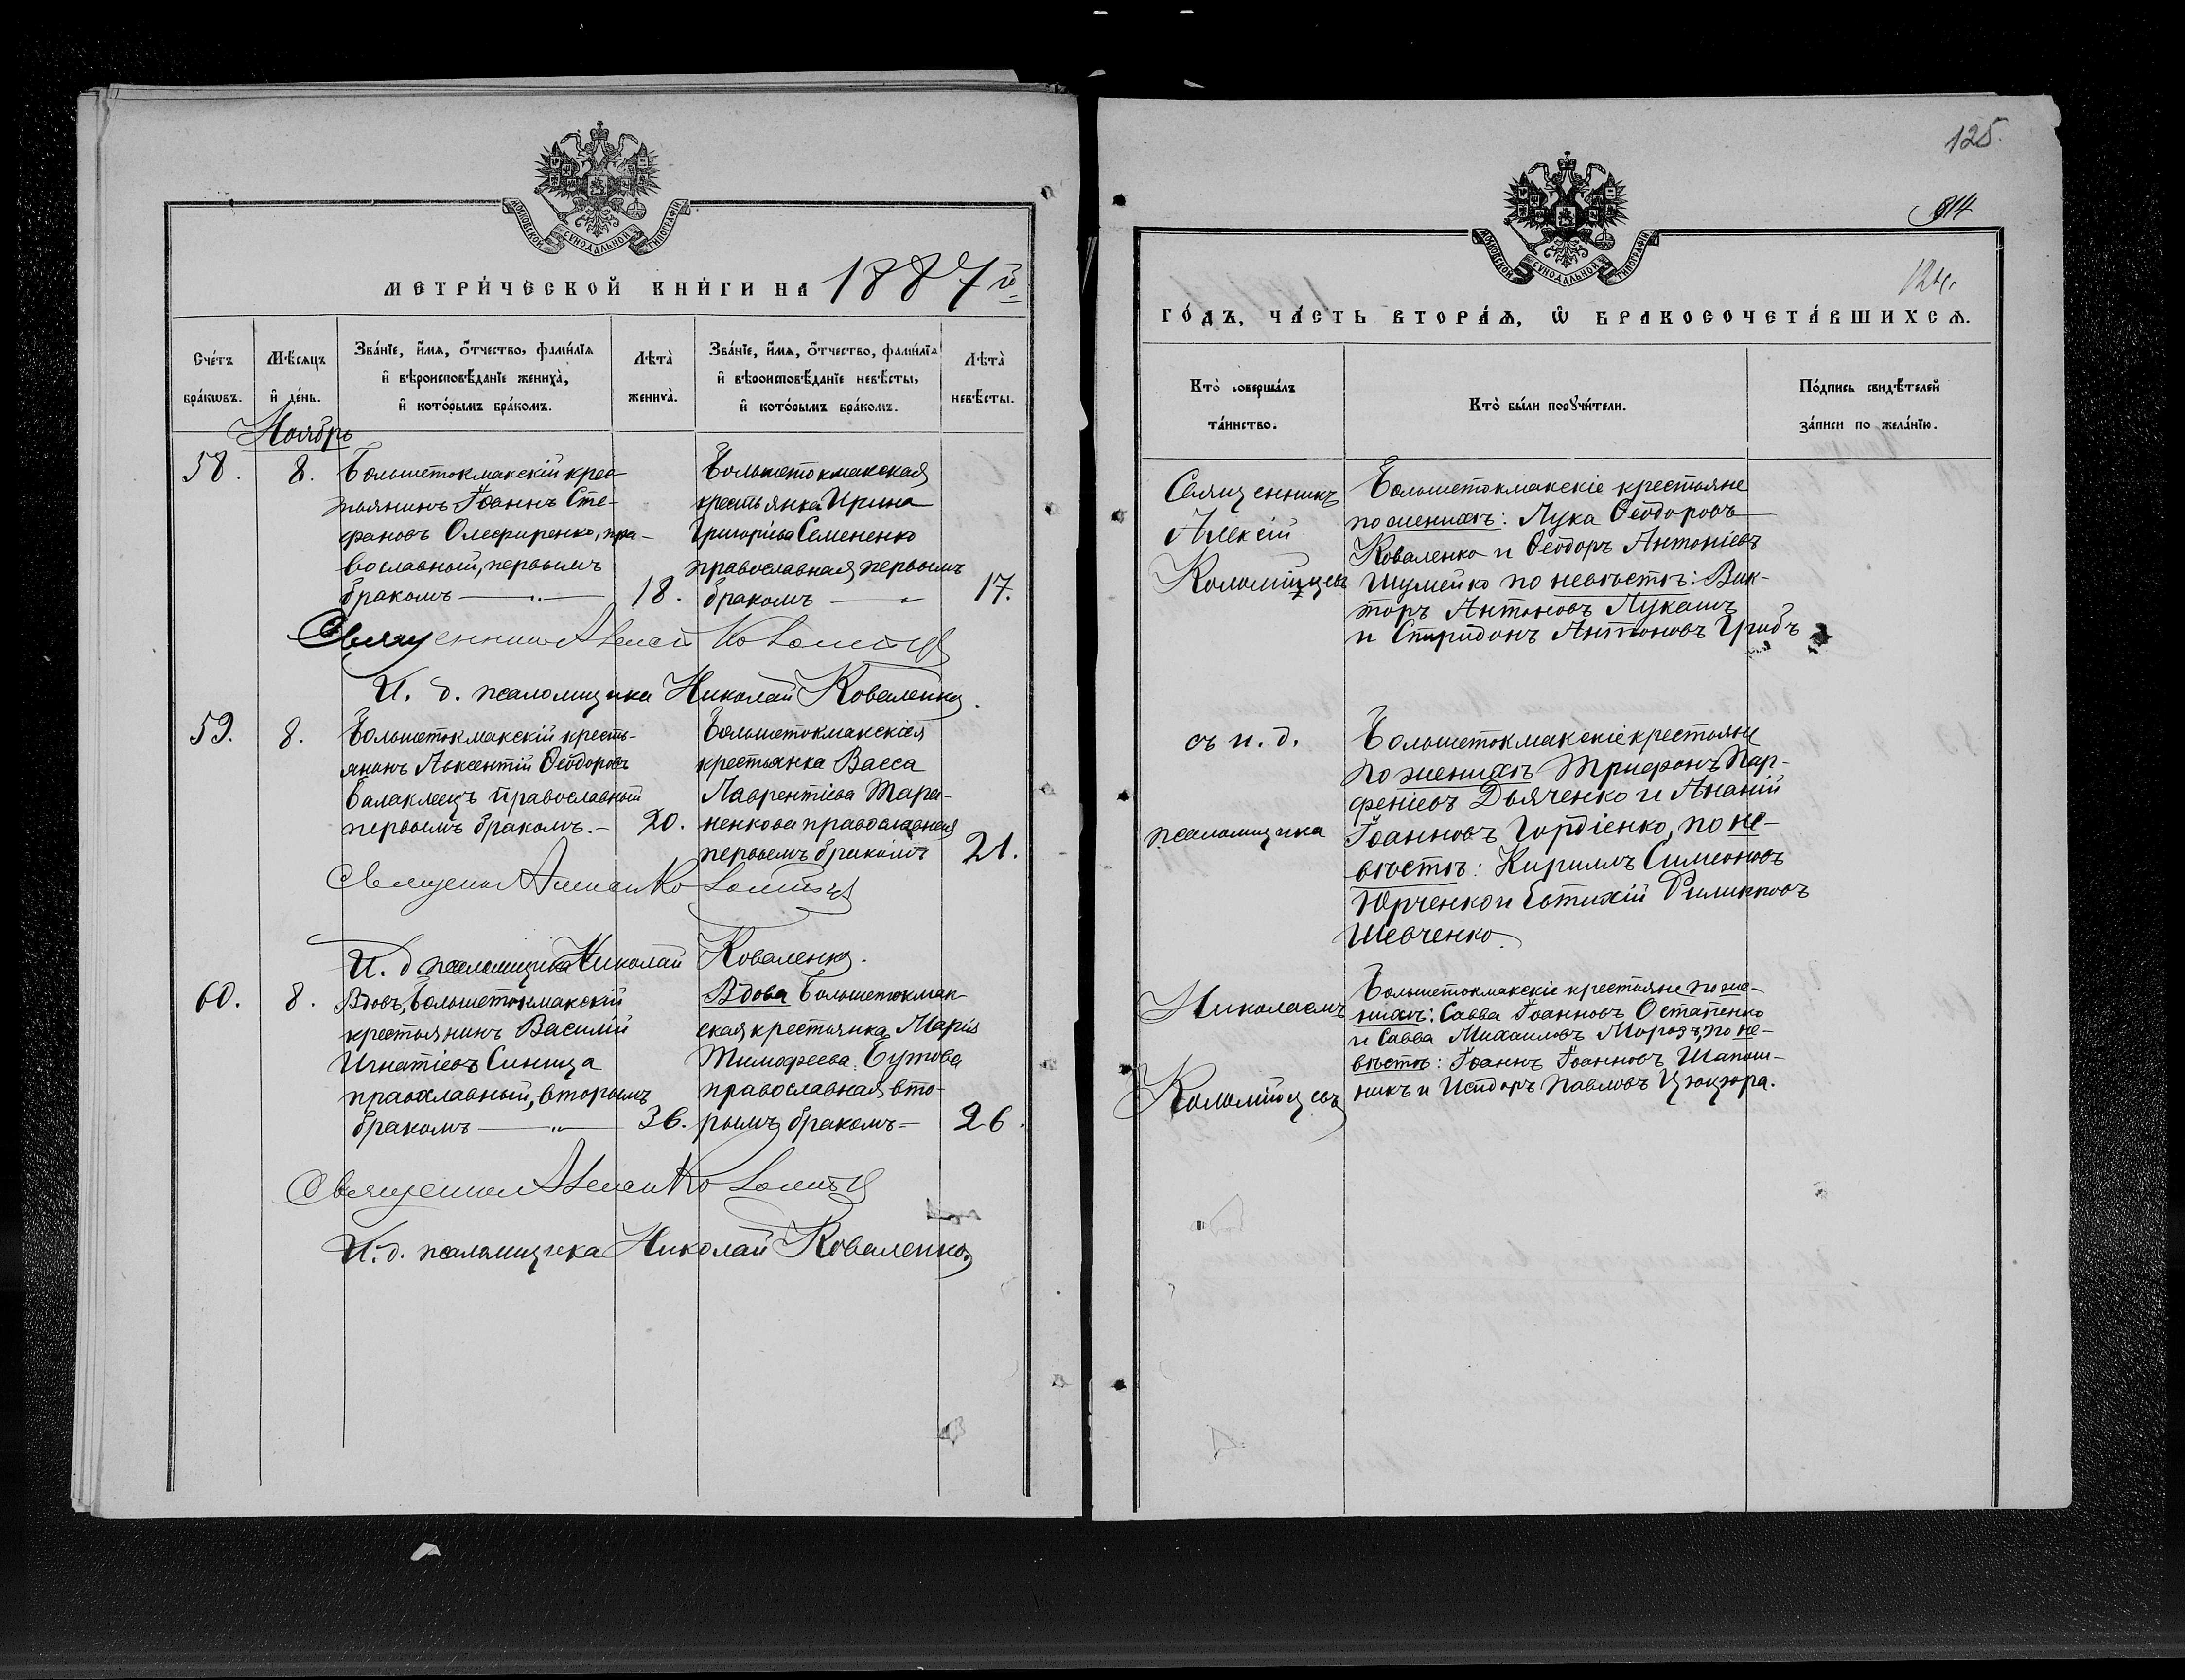 МОСКОВСКОЙ СѴНОДАЛЬНОЙ ТИПОГРАФІИ
МЕТРИ́ЧЕСКОЙ КНИ́ГИ НА 1887й
Сче́тъ бра́кѡвъ.
Мѣ́сяцъ и҆ де́нь.
Зва́нїе, и҆́мѧ, ѻ҆́тчество, фами́лїѧ
и҆ вѣроисповѣ́данїе жениха̀,
и҆ кото́рымъ бра́комъ.
Лѣта̀ жениха̀.
Зва́нїе, и҆́мѧ, ѻ҆́тчество, фами́лїѧ
и҆ вѣроисповѣ́данїе невѣ́сты,
и҆ кото́рымъ бра́комъ.
Лѣта̀ невѣ́сты.
Ноябрь
58.
8.
Большетокмакскій крес-
тьянинъ Іоаннъ Сте-
фановъ Олефиренко, пра-
вославный, первымъ
бракомъ — „ —
18.
Большетокмакская
крестьянка Ирина
Григоріева Семененко
православная первымъ
бракомъ — „
17.
Священникъ Алексій Коломійцевъ
И. д. псаломщика Николай Коваленко.
59.
8.
Большетокмакскій кресть-
янинъ Авксентій Ѳеодоровъ
Балаклеецъ православный
первымъ бракомъ. —
20.
Большетокмакская
крестьянка Васса
Лаврентіева Тара-
ненкова православная
первымъ бракомъ
21.
Священникъ Алексій Коломійцевъ
И. д псаломщика Николай Коваленко.
60.
8.
Вдовъ, Большетокмакскій
крестьянинъ Василій
Игнатіевъ Синица
православный, вторымъ
бракомъ — „ —
36.
Вдова Большетокмак-
ская крестьянка Марія
Тимофеева Бутова
православная вто-
рымъ бракомъ —
26.
Священникъ Алексій Коломійцевъ
И. д. псаломщика Николай Коваленко.
125.
914
124.
МОСКОВСКОЙ СѴНОДАЛЬНОЙ ТИПОГРАФІИ
ГО́ДЪ, ЧА́СТЬ ВТОРА́Ѧ, Ѡ҆ БРАКОСОЧЕТА́ВШИХСѦ.
Кто̀ соверша́лъ
та́инство.
Кто̀ бы́ли порꙋчи́тели.
По́дпись свидѣ́телей
за́писи по жела́нїю.
Священникъ
Алексій
Коломійцевъ
Большетокмакскіе крестьяне
по женихѣ: Лука Ѳеодоровъ
Коваленко и Ѳеодоръ Антоніевъ
Шумейко по невѣстѣ: Вик-
торъ Антоновъ Лукашъ
и Спиридонъ Антоновъ Грибъ
съ и. д.
псаломщика
Большетокмакскіе крестьяне
по женихѣ Трифонъ Пар-
феніевъ Дьяченко и Ананій
Іоанновъ Гордіенко, по не-
вѣстѣ: Кириллъ Симеоновъ
Юрченко и Евтихій Филипповъ
Шевченко.
Николаемъ
Коломійцевъ
Большетокмакскіе крестьяне по же-
нихѣ: Савва Іоанновъ Остапенко
и Савва Михаиловъ Морозъ, по не-
вѣстѣ: Іоаннъ Іоанновъ Шапош-
никъ и Исидоръ Павловъ Цюцюра.